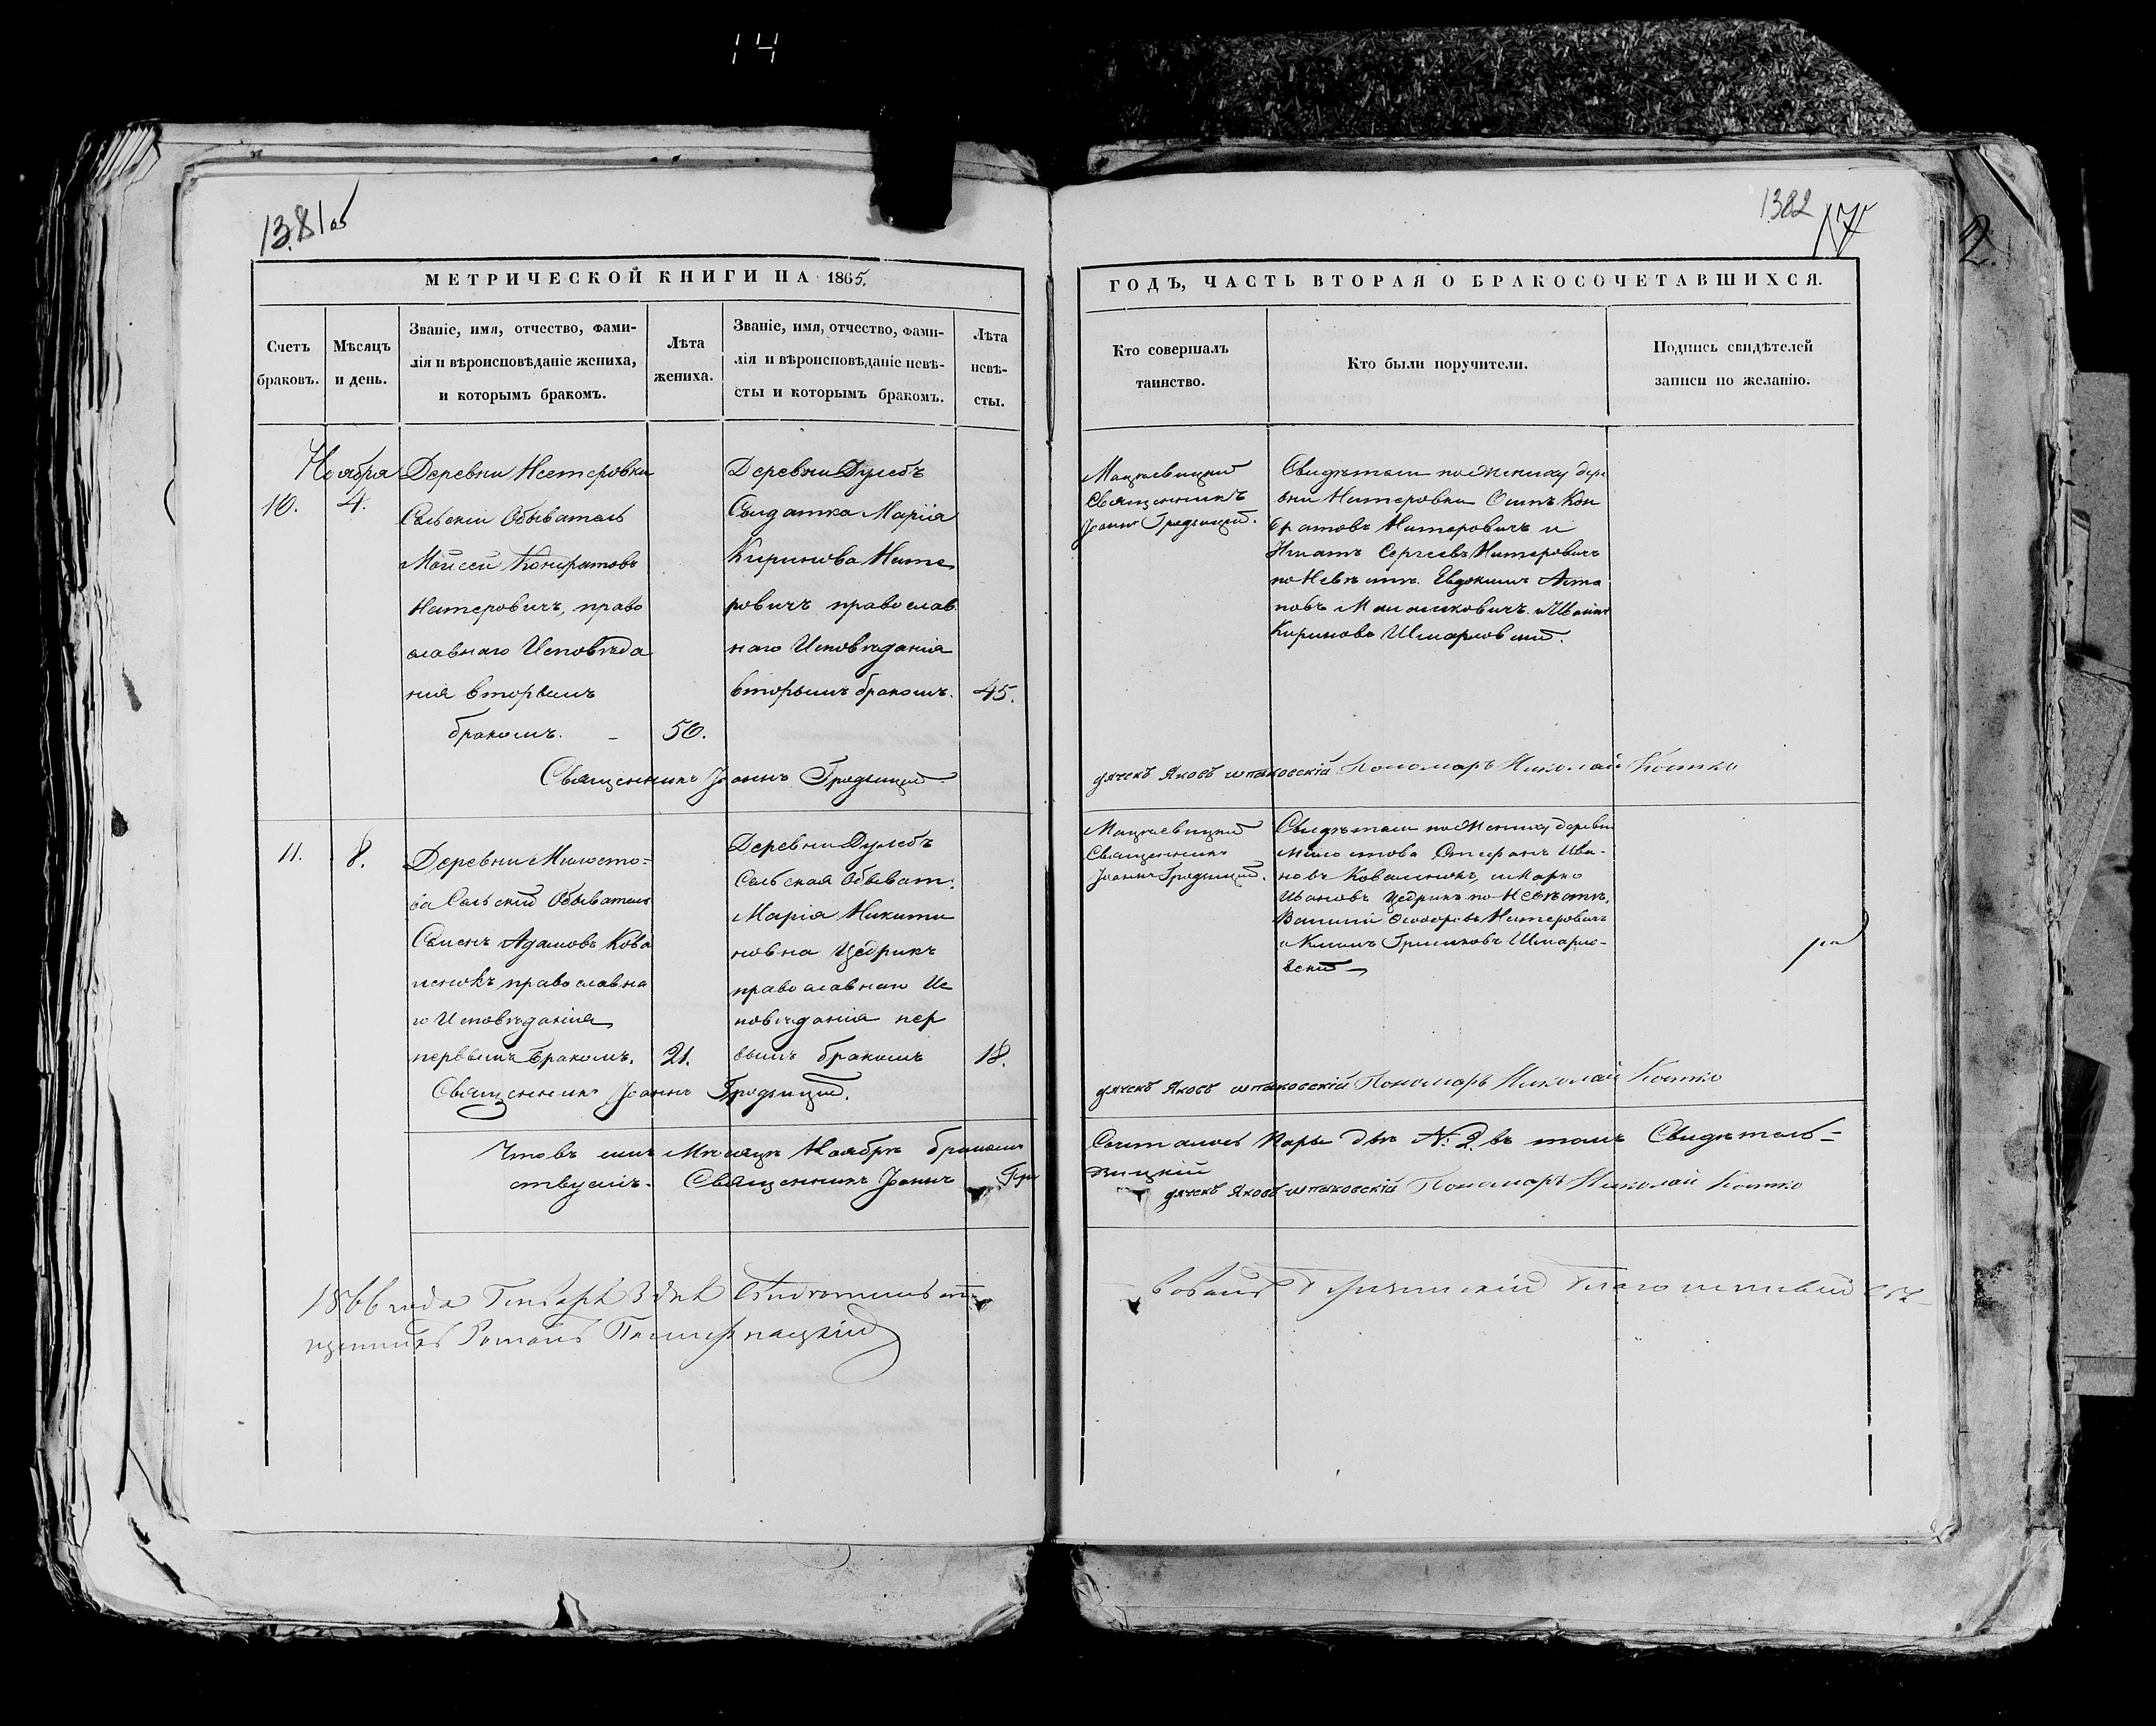 14
1381об
1382
17
2.
МЕТРИЧЕСКОЙ КНИГИ НА 1865.
Счетъ
браковъ.
Мѣсяцъ
и день.
Званіе, имя, отчество, фами-
лія и вѣроисповѣданіе жениха,
и которымъ бракомъ.
Лѣта
жениха.
Званіе, имя, отчество, фами-
лія и вѣроисповѣданіе невѣ-
сты и которымъ бракомъ.
Лѣта
невѣ-
сты.
Ноября
10.
4.
Деревни Нестеровки
Сельскій Обыватель
Мойсей Кондратовъ
Нитеровичъ, право
славнаго Исповѣда
нія вторымъ
бракомъ.
50.
Деревни Дулебъ
Солдатка Марія
Киринова Ните
ровичъ православ
наго Исповѣданія
вторымъ бракомъ.
45.
Священникъ Іоаннъ
11.
8.
Деревни Милосто-
ва Сельскій Обыватель
Семенъ Адамовъ Кова
ленокъ православна
го Исповѣданія
первымъ бракомъ.
21.
Деревни Дулебъ
Сельская Обыват.
Марія Никити
новна Цедрикъ
православнаго Ис
повѣданія пер
вымъ бракомъ
18.
Священникъ Іоаннъ
Что въ семъ Мѣсяцѣ Ноябрѣ бракомъ
ствуемъ. Священникъ Іоаннъ
1866 года Генваря 3 дня
Романъ
ГОДЪ, ЧАСТЬ ВТОРАЯ О БРАКОСОЧЕТАВШИХСЯ.
Кто совершалъ
таинство.
Кто были поручители.
Подпись свидѣтелей
записи по желанію.
Мацевицкій
Священникъ
Іоаннъ
Свидѣтели по Жениху дере
вни Нитеровки Осипъ Кон
дратовъ Нитеровичъ и
Игнатъ Сергеевъ Нитеровичъ
по Невѣстѣ Евдокимъ
Иванъ
Киринова Шмарловскій.
дячекъ Яковъ шпаковскій Пономаръ Николай Костко
Священникъ
Іоаннъ
Свидѣтели по Жениху деревни
Милостова Стефанъ Ива-
новъ Коваленокъ, и Марко
Ивановъ Цедрикъ по Невѣстѣ,
Василій Феодоровъ Нитеровичъ
и Климъ Шмарло-
вскій
дячекъ Яковъ шпаковскій Пономаръ Николай Костко
Сочталось Пары двѣ № 2 въ томъ Свидѣтель-
дячекъ Яковъ шпаковскій Пономаръ Николай Костко